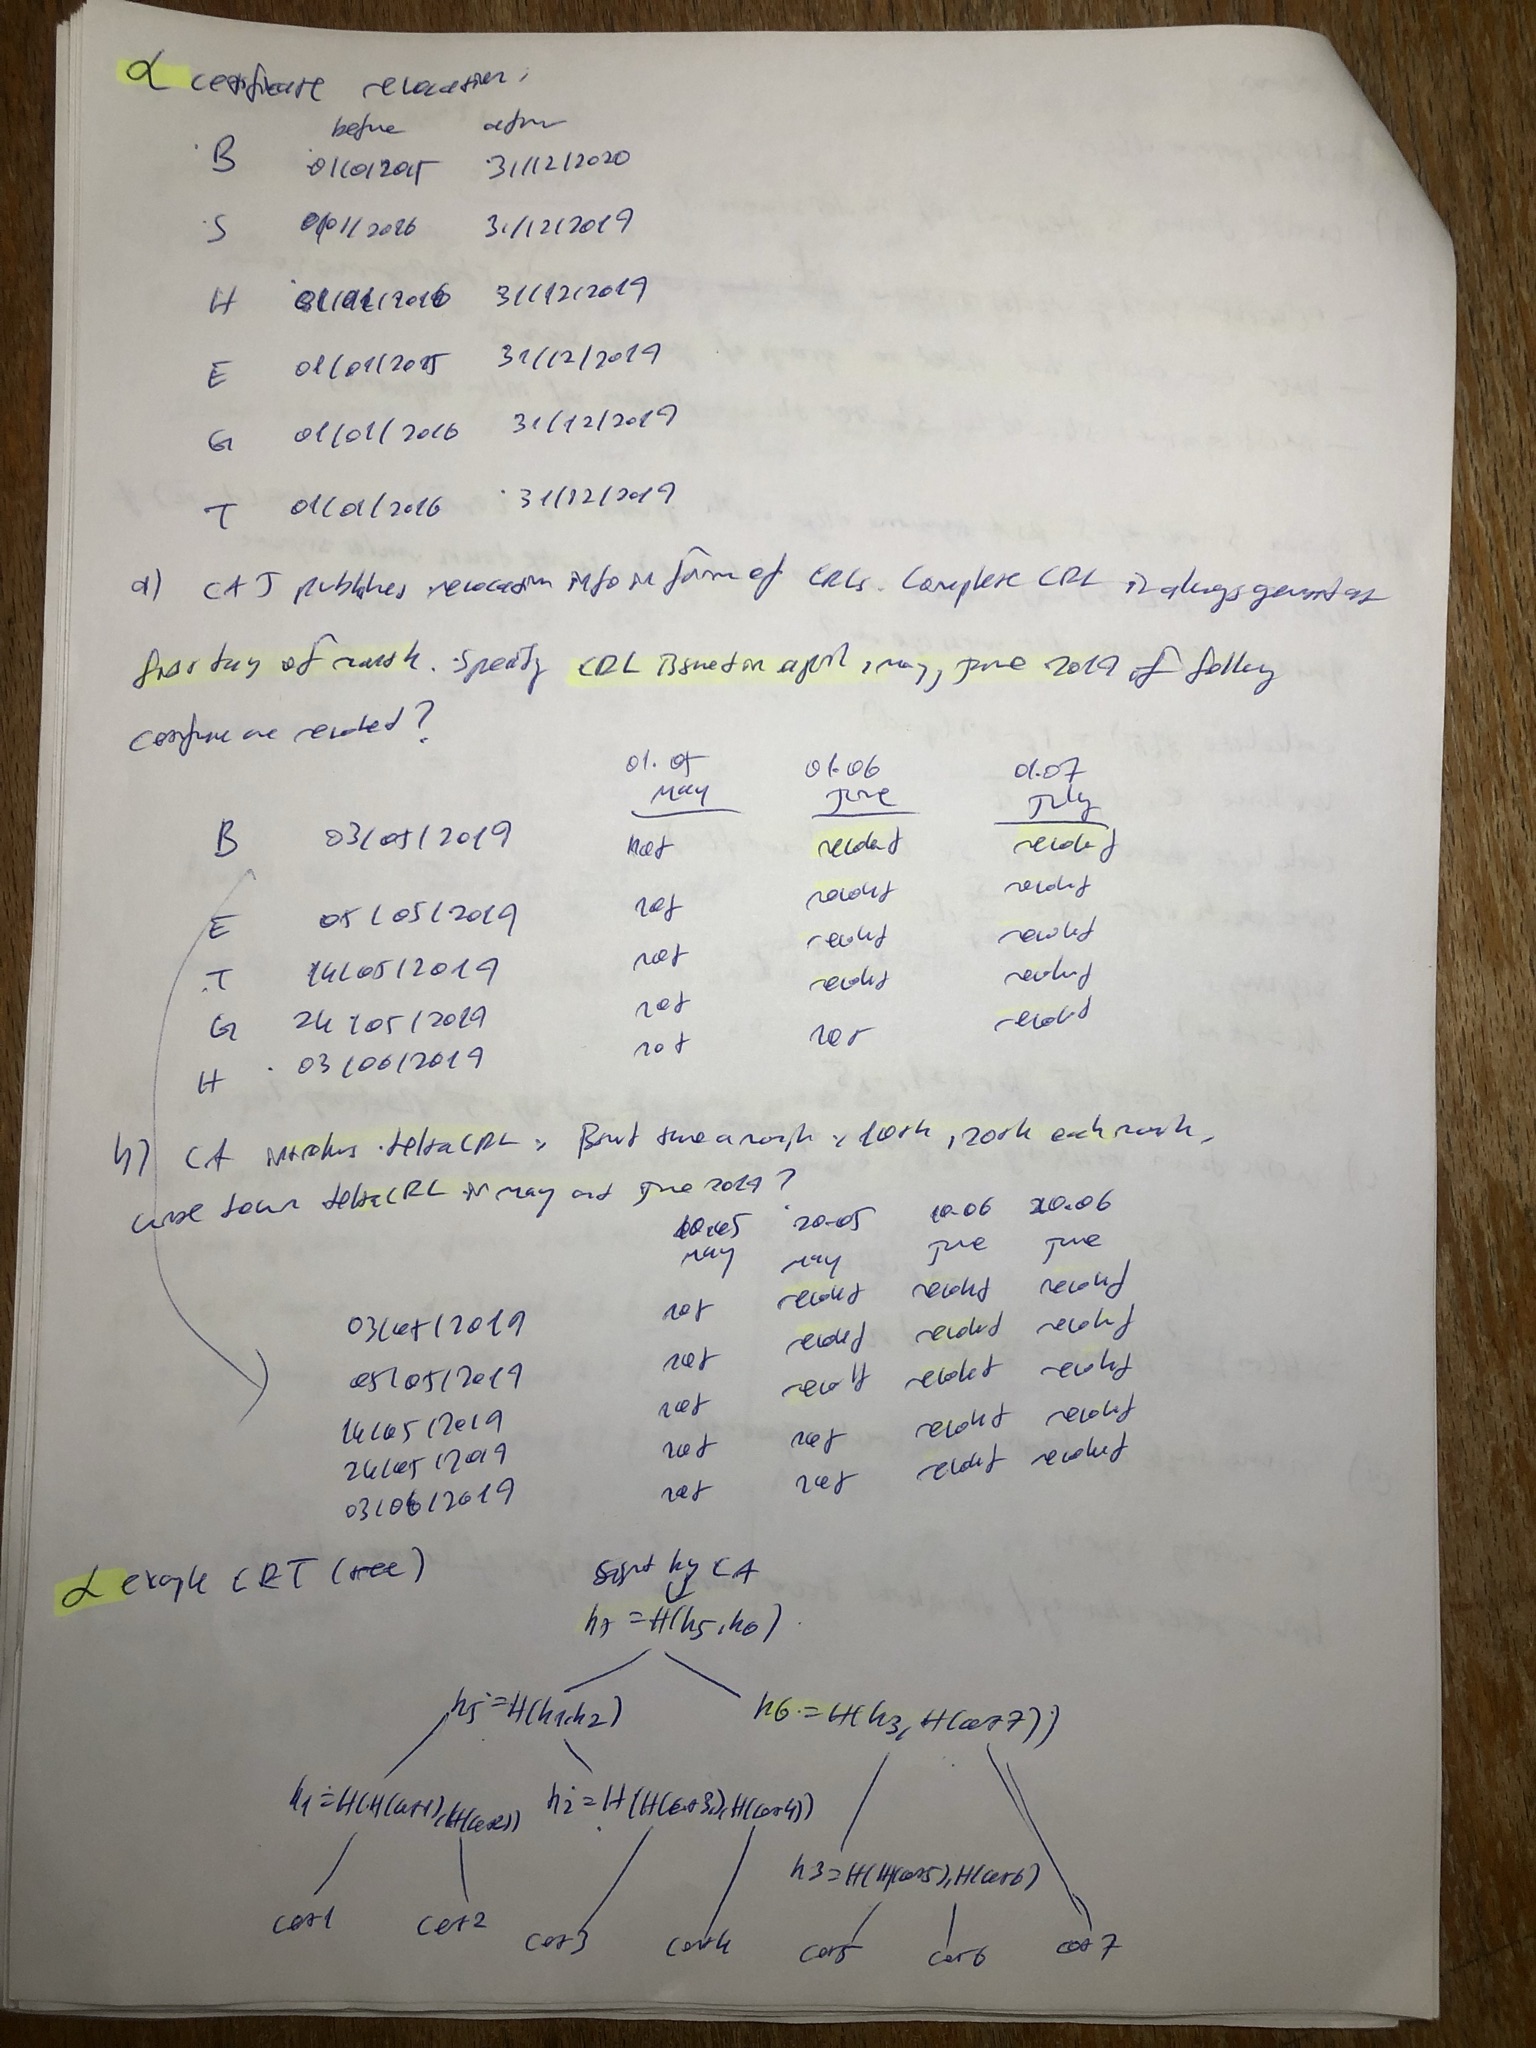 α certificate revocation,
before after
B 01/01/2015 31/12/2020
S 01/01/2016 31/12/2019
H 01/01/2016 31/12/2019
E 01/01/2015 31/12/2019
G 01/01/2016 31/12/2019
T 01/01/2016 31/12/2019
a) CA J publishes revocation info in form of CRLs. Complete CRL is always generat at
first day of month. Specify CRL Issuet in april, may, june 2019 if
are revoket?
01.05 01.06 01.07
may june july
B 03/05/2019 not revoket revoket
E 05/05/2019 not revoket revoket
T 14/05/2019 not revoket revoket
G 24/05/2019 not revoket revoket
H 03/06/2019 not not revoket
b) CA delta CRL, 10th, 20th each month,
delta CRL in may and june 2019?
10.05 20.05 10.06 20.06
may may june june
03/05/2019 not revoket revoket revoket
05/05/2019 not revoket revoket revoket
14/05/2019 not revoket revoket revoket
24/05/2019 not not revoket revoket
03/06/2019 not not revoket revoket
α example CRT (tree) signt by CA
h7 = H(h5,h6)
h5 = H(h1,h2) h6 = H(h3, H(cer7))
h1 = H(H(cer1),H(cer2)) h2 = H(H(cer3),H(cer4))
h3 = H(H(cer5),H(cer6)
cer1 cer2 cer3 cer4 cer5 cer6 cer7